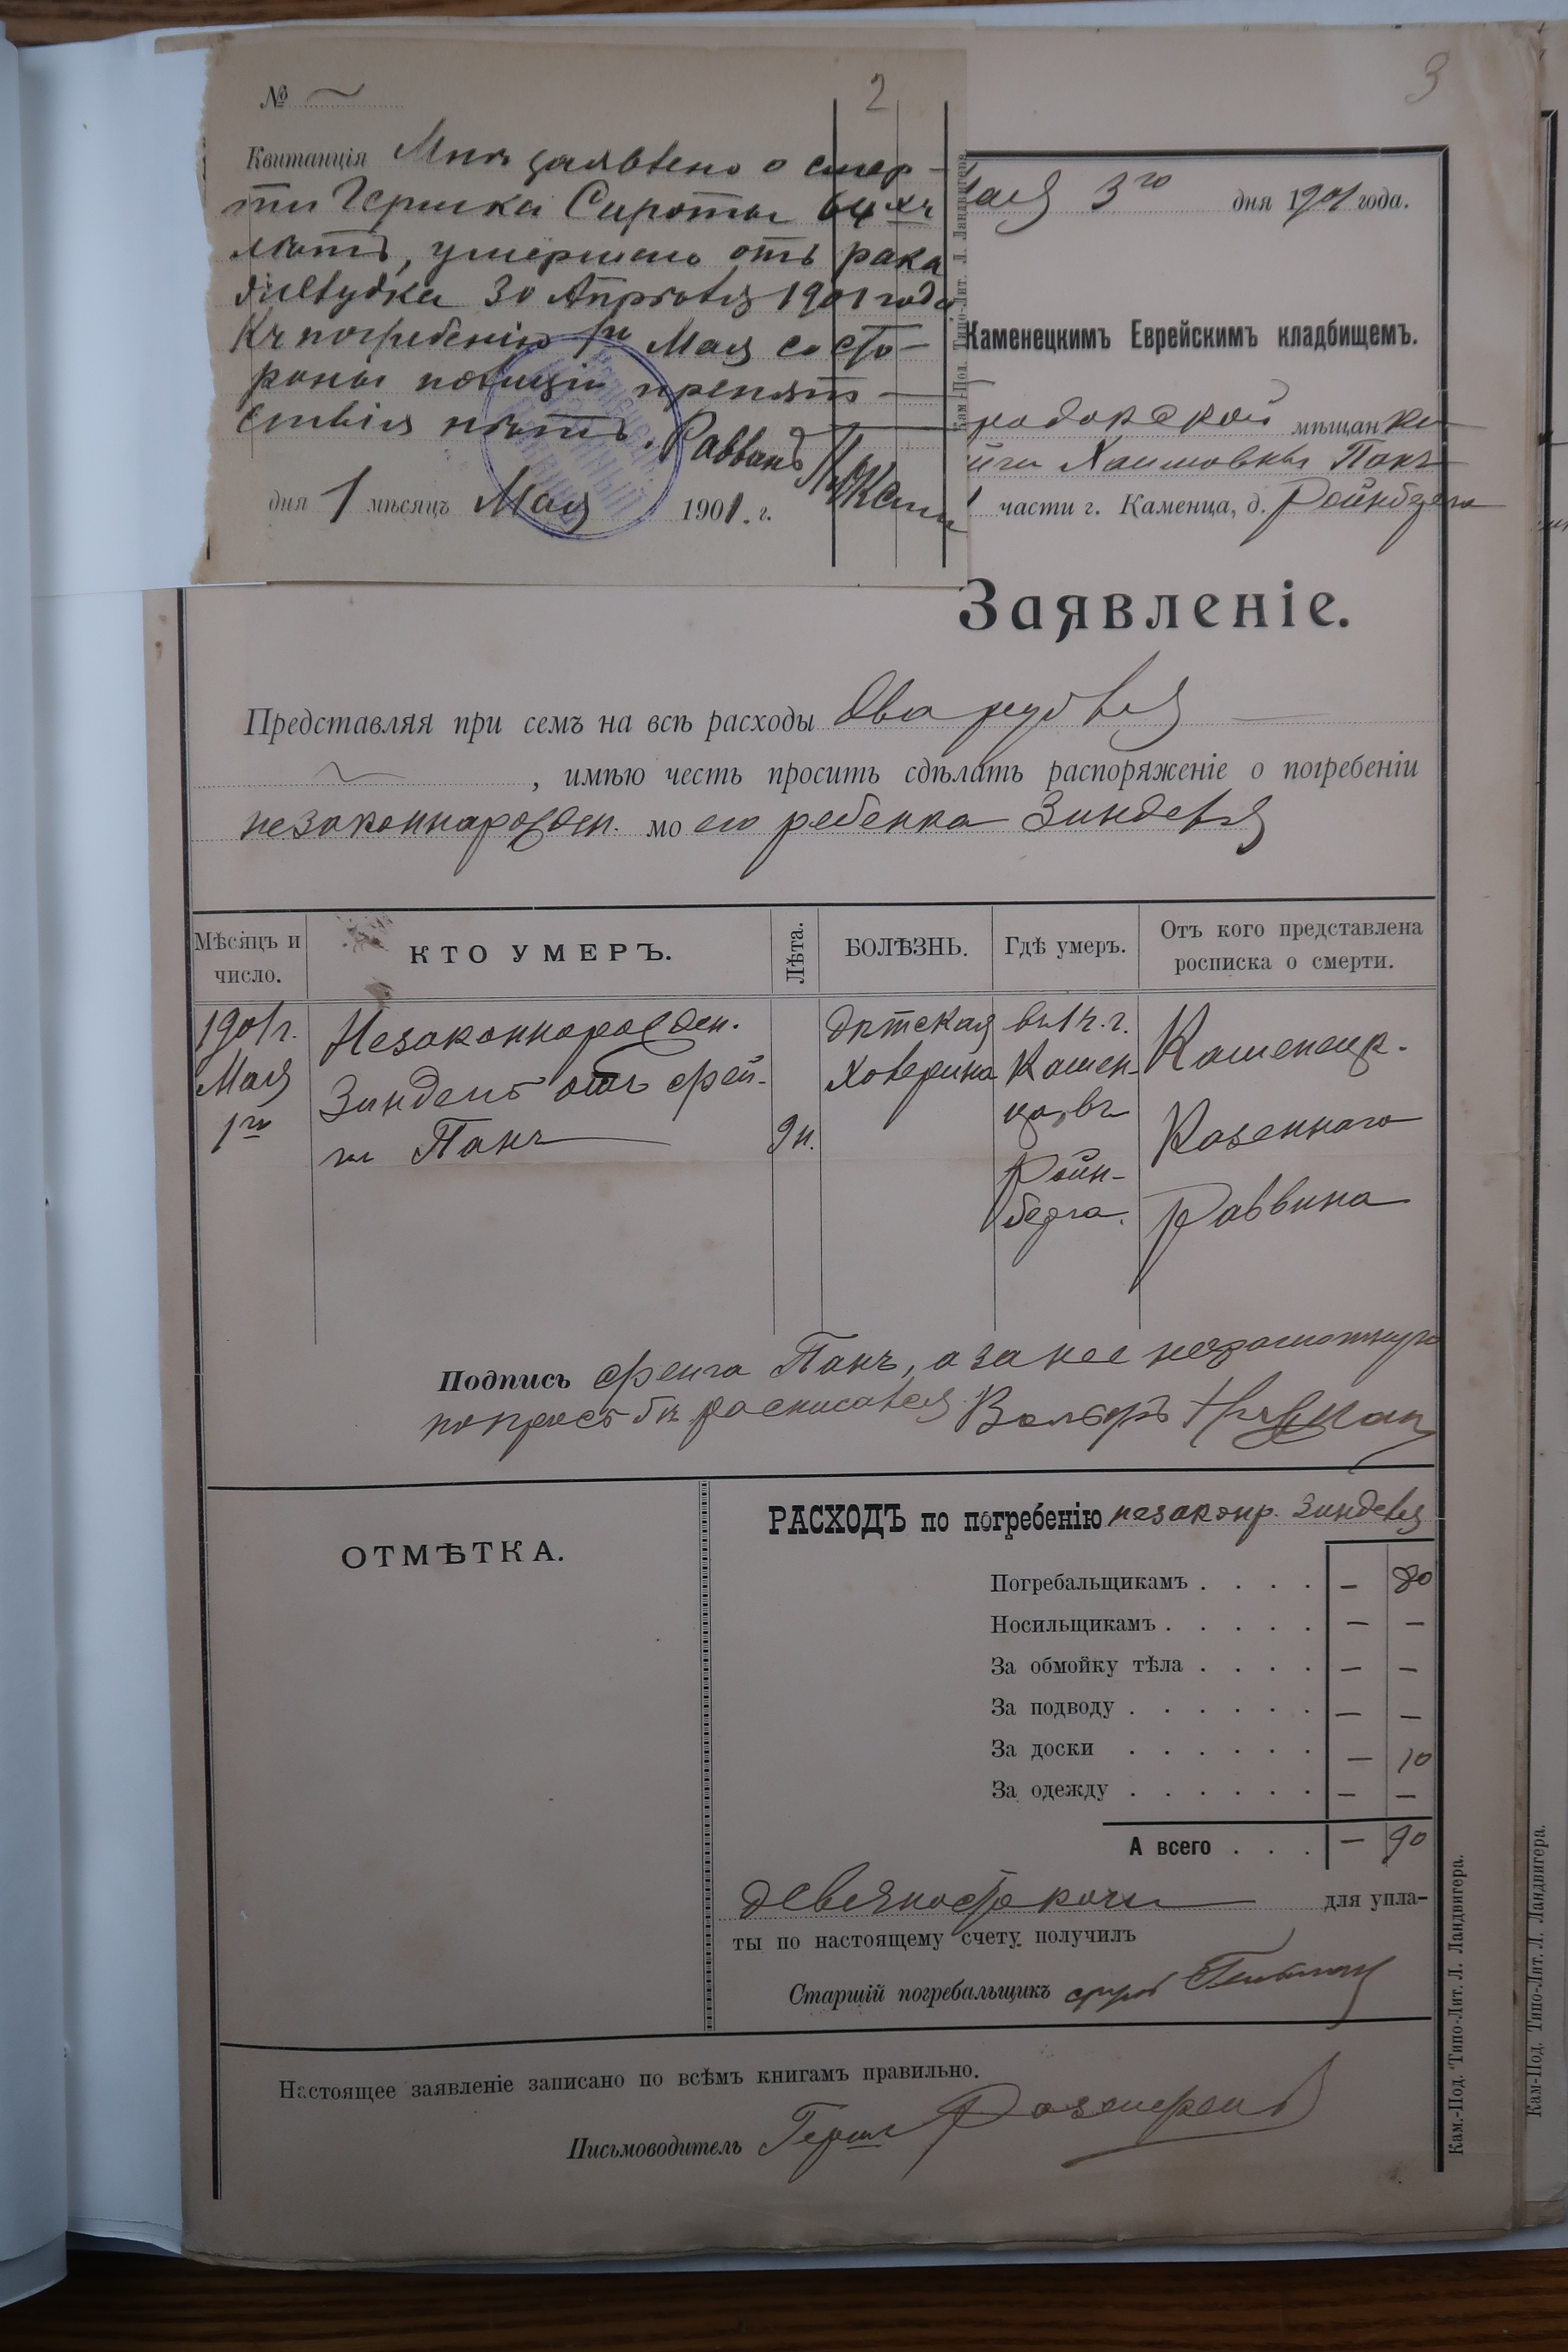 2
3
№
Квитанція Мнѣ заявлено о смер-
ти Гершка Сироты 64хъ
лѣтъ, умершаго отъ рака
желудка 30 Апрѣля 1901 года
Къ погребенію 1го Мая со сто-
роны полиціи препят-
ствія нѣтъ. Раввинъ
дня 1 мѣсяцъ Мая 1901. г.
Мая 3го дня 1901 года.
Каменецкимъ Еврейскимъ кладбищемъ.
мѣщанки
Хаимовны Панъ
части г. Каменца, д. Рейнберга
Заявленіе.
Представляя при семъ на всѣ расходы два рубля
, имѣю честь просить сдѣлать распоряженіе о погребеніи
незаконнорожден. моего ребенка Зинделя
Мѣсяцъ и число.
КТО УМЕРЪ.
Лѣта.
БОЛѢЗНЬ.
Гдѣ умеръ.
Отъ кого представлена росписка о смерти.
1901 г.
Мая
1го
Незаконнорожден.
Зиндель отъ Фей-
ги Панъ
9 н.
дѣтская
холерина
въ 1 ч. г.
Камен-
ца, въ
Рейн-
берга.
Каменецк.
Казеннаго
Раввина
Подпись Фейга Панъ, а за нее неграмотную
по просьбѣ росписался Вольфъ
ОТМѢТКА.
РАСХОДЪ по погребенію незаконр. Зинделя
Погребальщикамъ . . . . — 80
Носильщикамъ . . . . . — —
За обмойку тѣла . . . . — —
За подводу . . . . . . — —
За доски . . . . . . — 10
За одежду . . . . . . — —
А всего . . . — 90
девяносто коп для упла-
ты по настоящему счету получилъ
Старшій погребальщикъ
Настоящее заявленіе записано по всѣмъ книгамъ правильно.
Письмоводитель Герш
Кам.-Под. Типо-Лит. Л. Ландвигера.
Кам-Под. Типо-Лит. Л. Ландвигера.
Кам-Под. Типо-Лит. Л. Ландвигера.